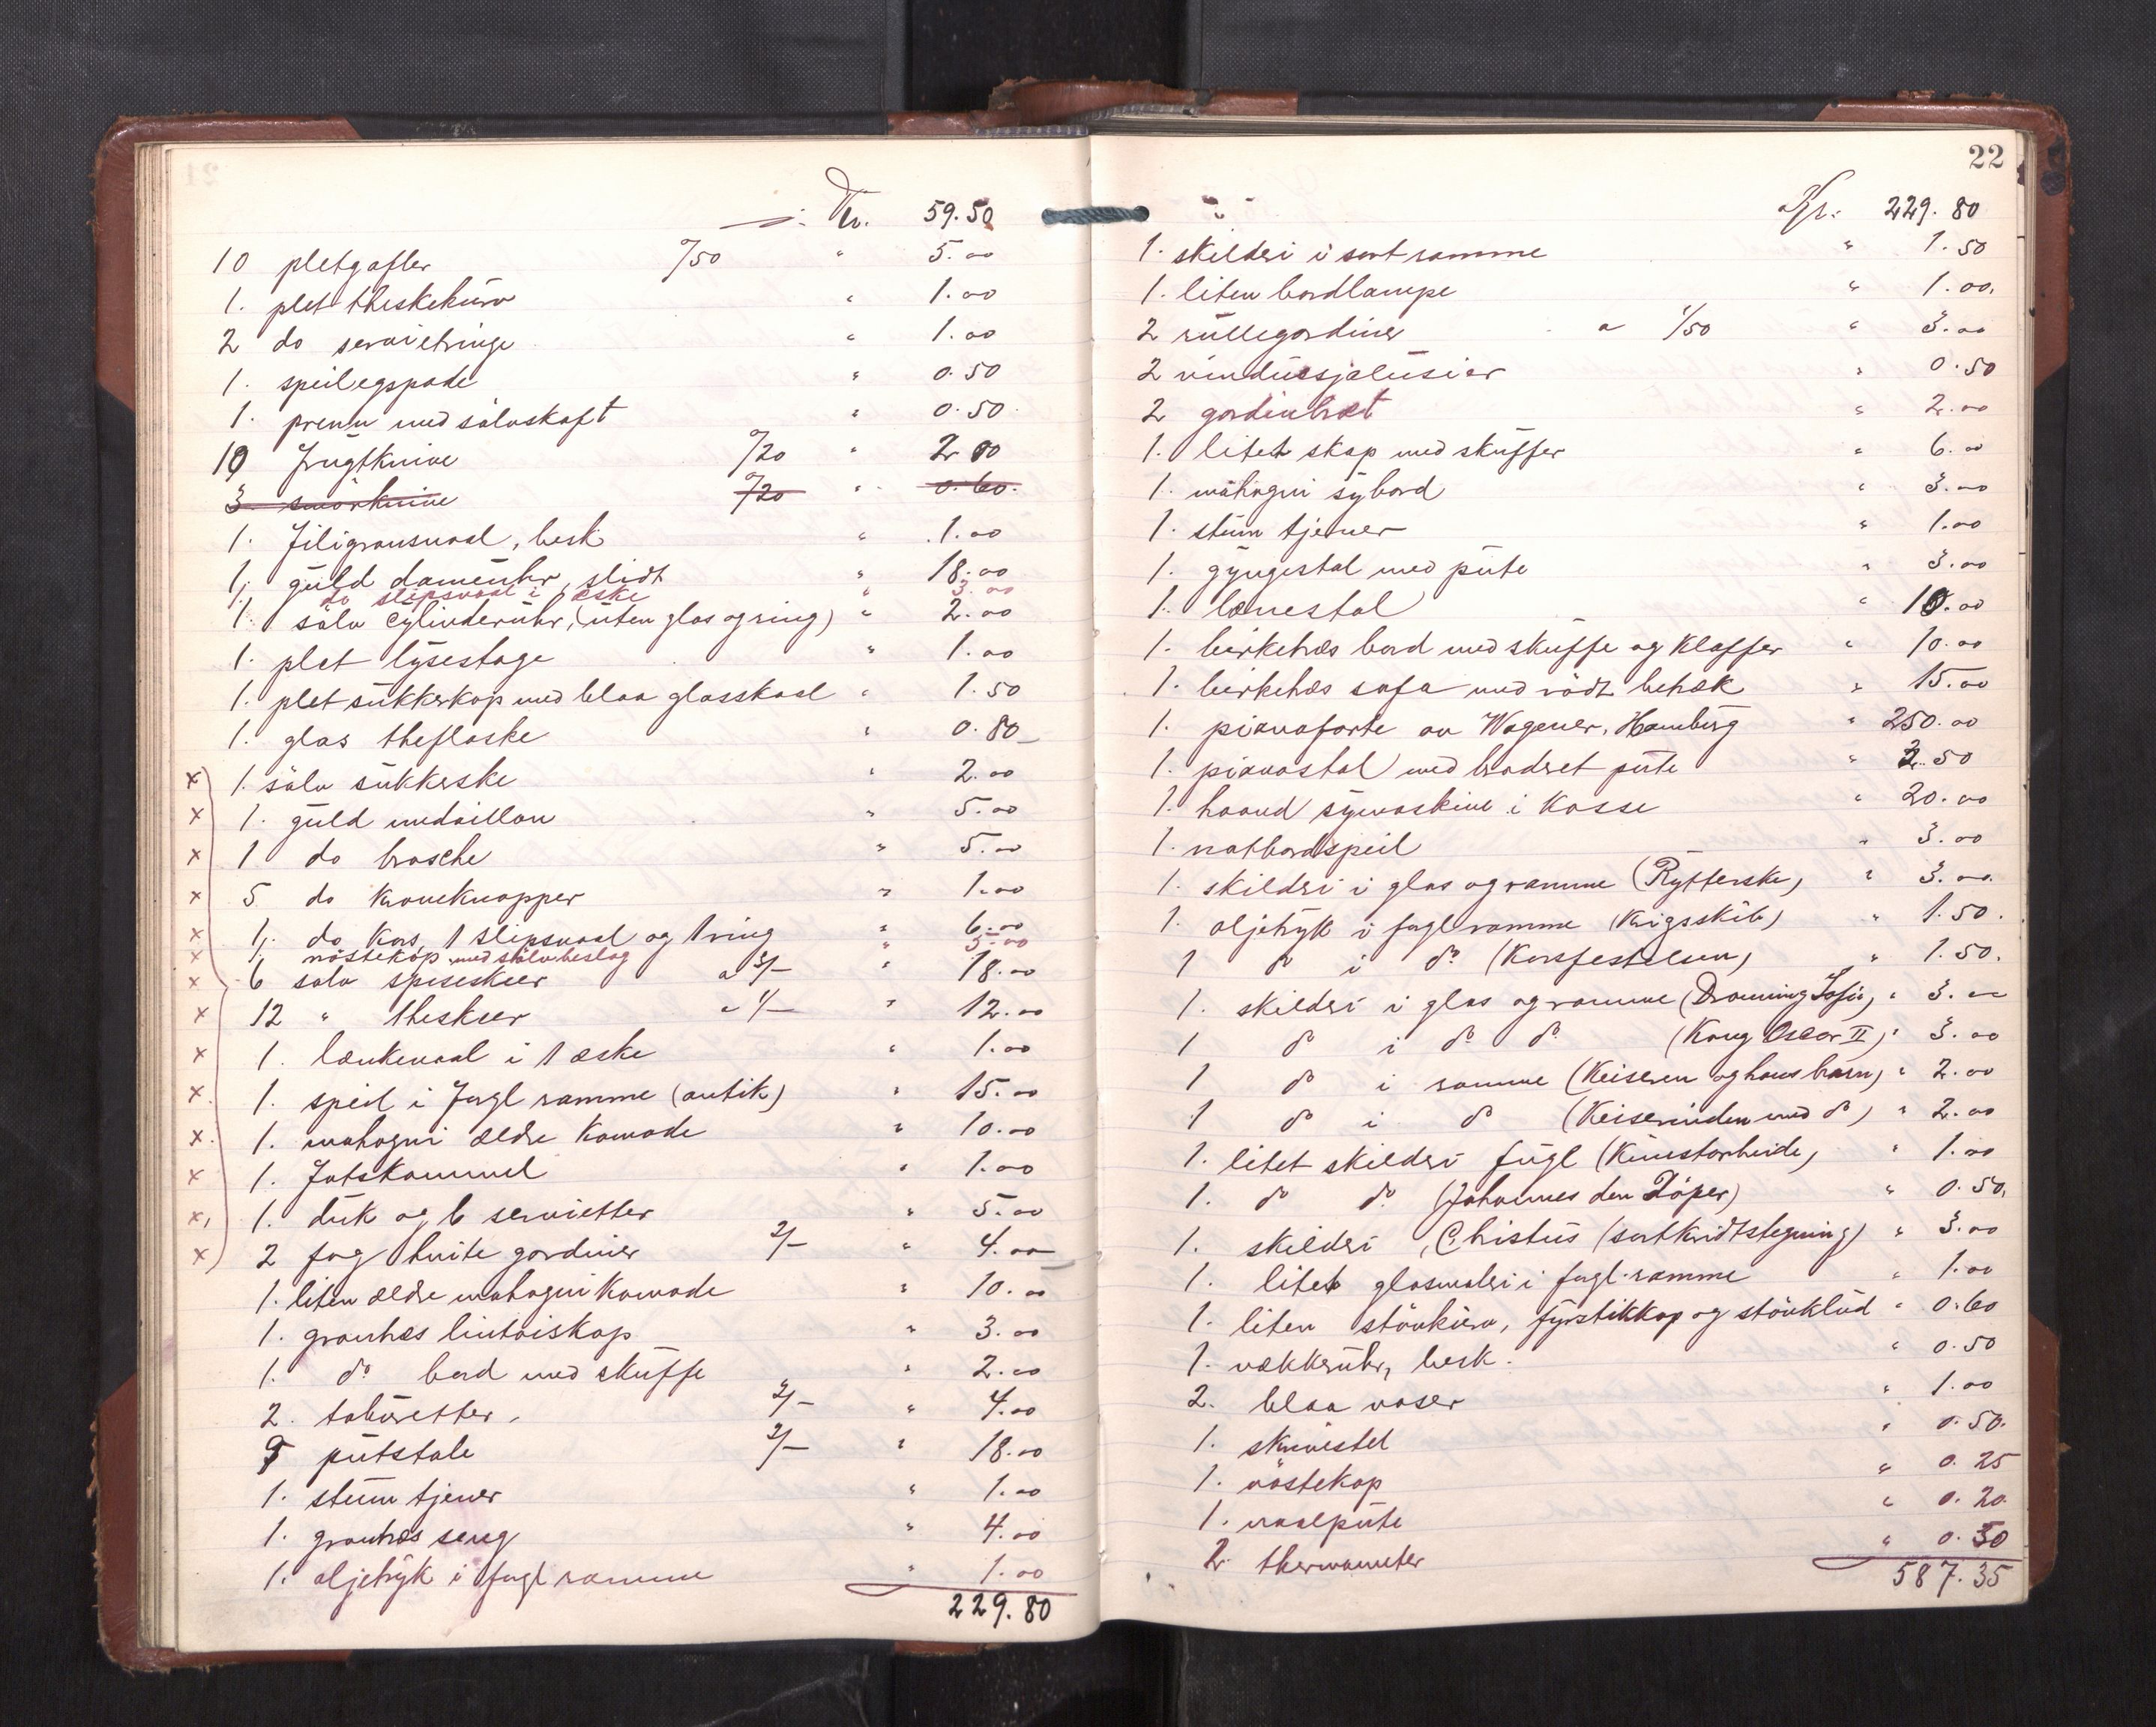 Kr. 59.50
10 pletgafler 0/50 " 5.00
1. plet theskekurv " 1.00
2 do servietringe " 1.00
1. speilegspade " 0.50
1. prenn med sölvskaft " 0.50
10 Frugtknive 0/20 " 2.00
3 smörknive 0/20 " 0.60.
1. Filigransnaal, besk. " 1.00
1. guld dameuhr, slidt " 18.00
1. do slipsnaal i æske " 3.00
1. sölv cylinderuhr, (uten glas og ring) " 2.00
1. plet lysestage " 1.00
1. plet sukkerkop med blaa glasskaal " 1.50
1. glas theflaske " 0.80
x 1. sölv sukkerske " 2.00
x 1. guld medaillon " 5.00
x 1 do brosche " 5.00
x 5 do kraveknapper " 1.00
x 1. do kors, 1 slipsnaal og 1 ring " 6.00
x 1. nöstekop med sölvbeslag " 5.00
x 6 sölv spiseskeer a 3/- " 18.00
x 12 " theskeer a 1/- " 12.00
x 1. lænkenaal i 1 æske " 1.00
x. 1. speil i forgl ramme (antik) " 15.00
x. 1. mahogni ældre komode " 10.00
x 1. Fotskammel " 1.00
x, 1. duk og 6 servietter " 5.00
x 2 fag hvite gardiner 2/- " 4.00
1. liten ældre mahogni komode " 10.00
1. grantræs lintöiskap " 3.00
1. do bord med skuffe " 2.00
2. taburetter. 2/- " 4.00
9 putstole 2/- " 18.00
1. stum tjener " 1.00
1. grantræs seng " 4.00
1. oljetryk i forgl ramme " 1.00
229.80
22
Kr. 229.80
1. skilderi i sort ramme " 1.50
1. liten bordlampe " 1.00.
2 rullegardiner a 1/50 " 3.00
2 vinduesjalusier " 0.50
2 gardinbræt " 2.00
1. litet skap med skuffer " 6.00
1. mahogni sybord " 3.00
1. stum tjener " 1.00
1. gyngestol med pute " 3.00
1. lænestol " 10.00
1. birketræs bord med skuffe og klaffer " 10.00
1. birketræs sofa med rödt betræk " 15.00
1. pianoforte av Wagener, Hamburg " 250.00
1. pianostol med brodret pute " 2.50
1. haand symaskine i kasse " 20.00
1. natbordspeil " 3.00
1. skilderi i glas og ramme (Rytterske) " 3.00.
1. oljetryk i forgl ramme (Krigsskib) " 1.50.
1 do i do (Korsfestelsen) " 1.50.
1. skilderi i glas og ramme (Dronning Sofie) " 3.00
1 do i do do (Kong Oscar II) " 3.00
1 do i ramme (Keiseren og hans barn) " 2.00
1 do i do (Keiserinden med do) " 2.00
1. litet skilderi fugl (Kunstarbeide) " 1.00
1. do do (Johannes den Döper) " 0.50.
1. skilderi, Christus (sortkridtstegning) " 3.00
1. litet glasmaleri i forgl. ramme " 1.00
1. liten stövkurv, fyrstikkop og stövklud " 0.60
1. vækkeruhr, besk. " 0.50
2. blaa vaser " 1.00
1. skrivestel " 0.50.
1. nöstekop " 0.25
1. naalepute " 0.20.
2. thermometer " 0.50
587.35